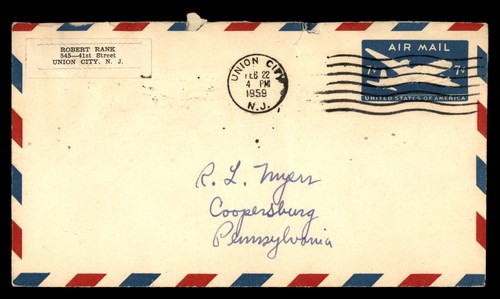 ROBERT RANK
545—41st Street
UNION CITY, N. J.
UNION CITY
FEB 22
4 PM
1959
N.J.
AIR MAIL
7¢ 7¢
UNITED STATES OF AMERICA
R. L. Myers
Coopersburg
Pennsylvania